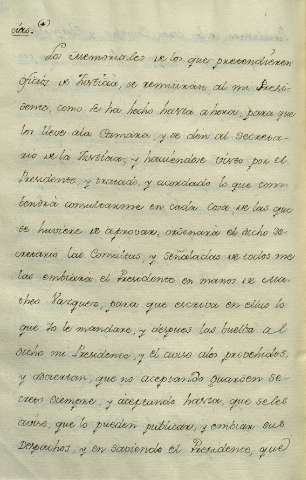 Los memoriales de los que pretendieren
oficios de Justicia, se remitirán al mi Presi-
dente, como se ha hecho hasta ahora, para que
los lleve ala Camara, y se den al Secreta-
rio de la Justicia, y haviendose visto por el
Presidente, y tratado, y acordado lo que com-
bendrá consultarme en cada cosa de las que
se huviere de aprovar, ordenará el dicho Se-
cretario las Consultas, y señaladas de todos me
las embiará el Presidente en manos de Ma-
theo Vazquez, para que escriva en ellas lo
que Yo le mandare, y despues las buelta al
dicho mi Presidente, y el aviso alos provehidos,
y adviertan, que no aceptando guarden se-
creto siempre, y aceptando hasta, que seles
avise, que lo pueden publicar, y embiar sus
Despachos, y en saviendo el Presidente, que